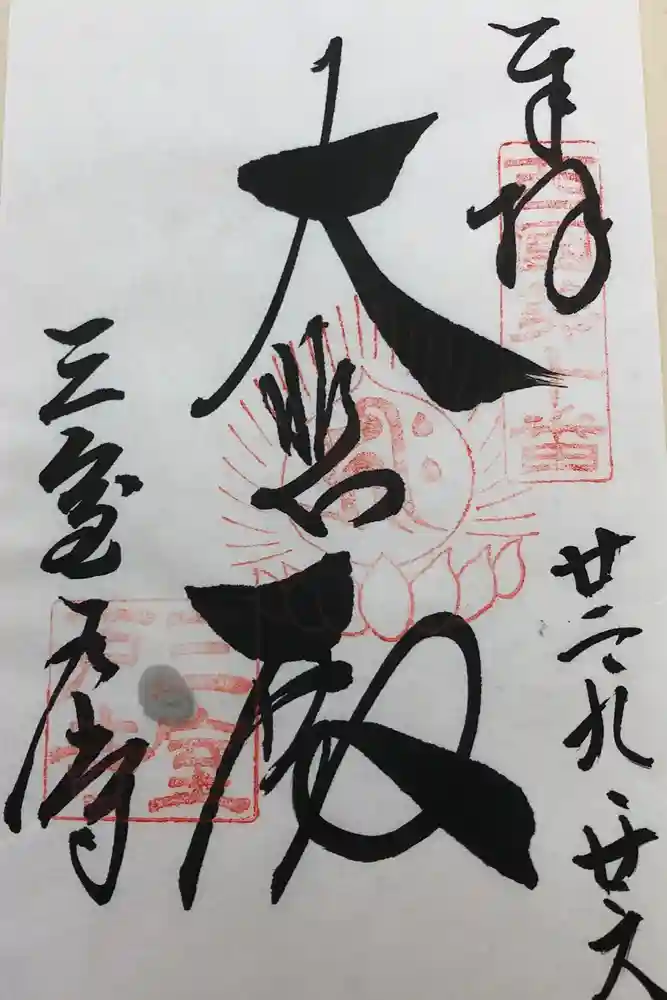 奉拝
西國第十番
廿二九、廿六
大悲殿
三室戸寺
三室
戸寺